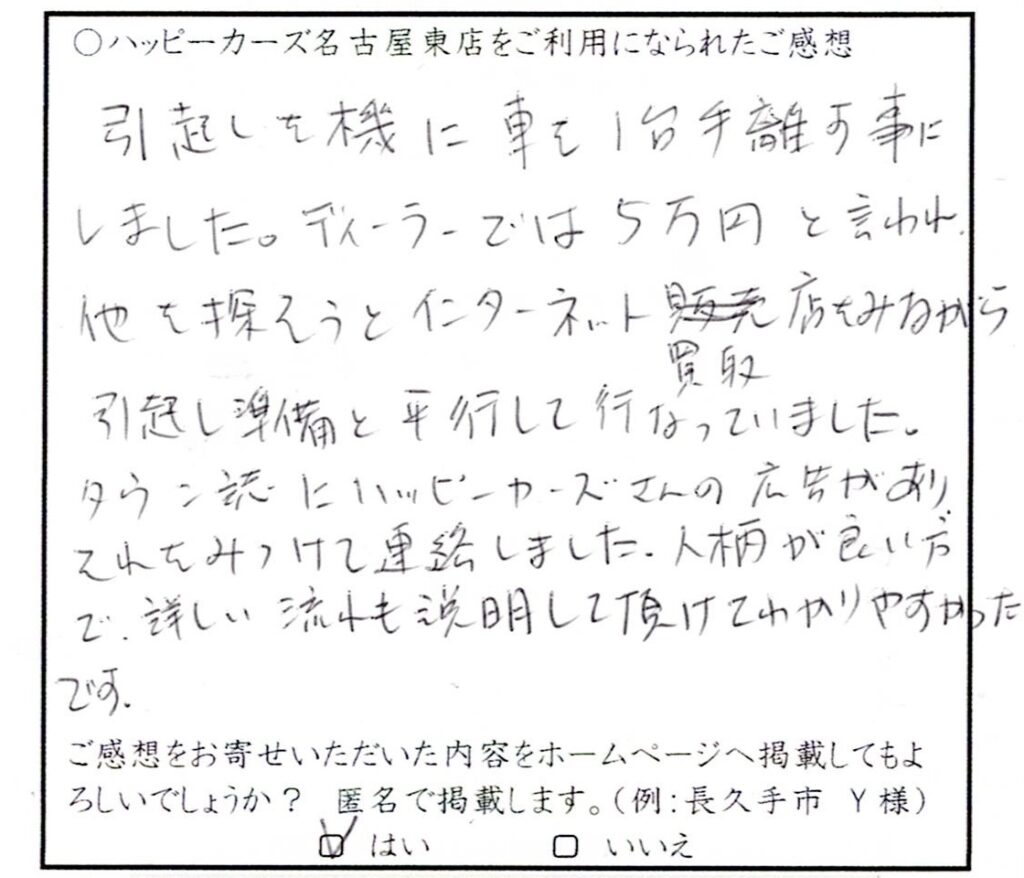 ○ハッピーカーズ名古屋東店をご利用になられたご感想
引起しを機に車を1台手離す事に
しました。ディーラーでは5万円と言われ、
他を探そうとインターネット販売店をみながら
買取
引起し準備と平行して行なっていました。
タウン誌にハッピーカーズさんの広告があり、
それをみつけて連絡しました。人柄が良い方
で、詳しい流れも説明して頂けてわかりやすかった
です。
ご感想をお寄せいただいた内容をホームページへ掲載してもよ
ろしいでしょうか? 匿名で掲載します。(例:長久手市 Y様)
☑ はい □ いいえ